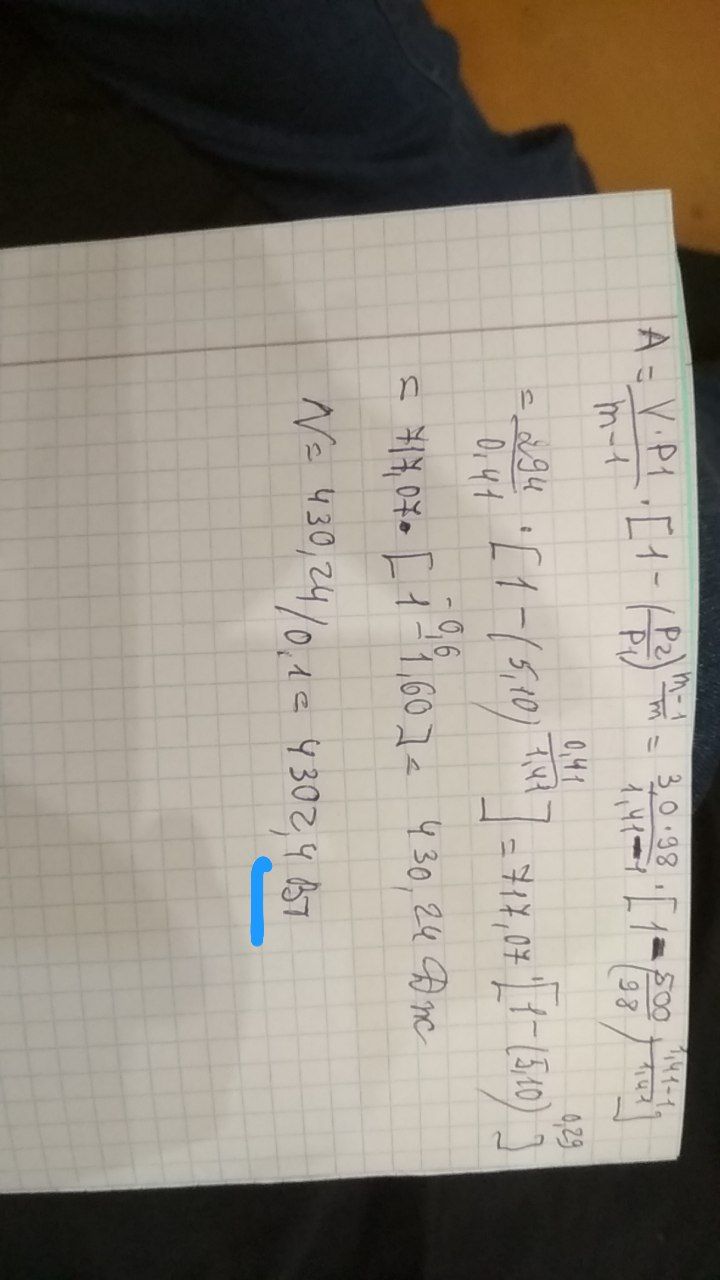 A = V·P1/m-1 · [1 - (P2/P1)^m-1/m = 3,0·98/1,41-1 · [1 - (500/98)^1,41-1/1,41]
= 294/0,41 · [1 - (5,10)^0,41/1,41] = 717,07 · [1 - (5,10)^0,29]
= 717,07 · [1 - 1,60] = 430,24 Дж
-0,6
N = 430,24/0,1 = 4302,4